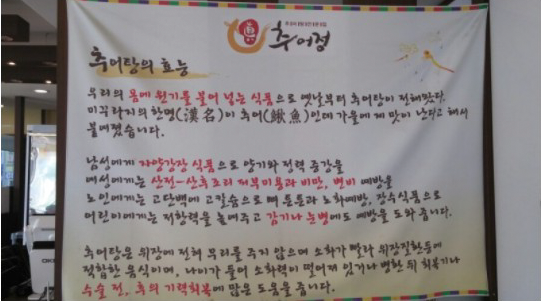 추어정
추어탕의 효능
우리의 몸에 원기를 불어 넣는 식품으로 옛날부터 추어탕이 전해왔다.
미꾸라지의 한명(漢名)이 추어(鰍魚)인데 가을에 제 맛이 난다고 해서
붙여졌습니다.
남성에게 자양강장 식품으로 양기와 정력 증강을
여성에게는 산전-산후조리 피부미용과 비만, 변비 예방을
노인에게는 고단백에 고칼슘으로 뼈 튼튼과 노화예방, 장수식품으로
어린이에게는 저항력을 높여주고 감기나 눈병에도 예방을 도와 줍니다.
추어탕은 위장에 전혀 무리를 주지 않으며 소화가 빨라 위장질환등에
적합한 음식이며, 나이가 들어 소화력이 떨어져 있거나 병한 뒤 회복기나
수술 전, 후의 기력회복에 많은 도움을 줍니다.